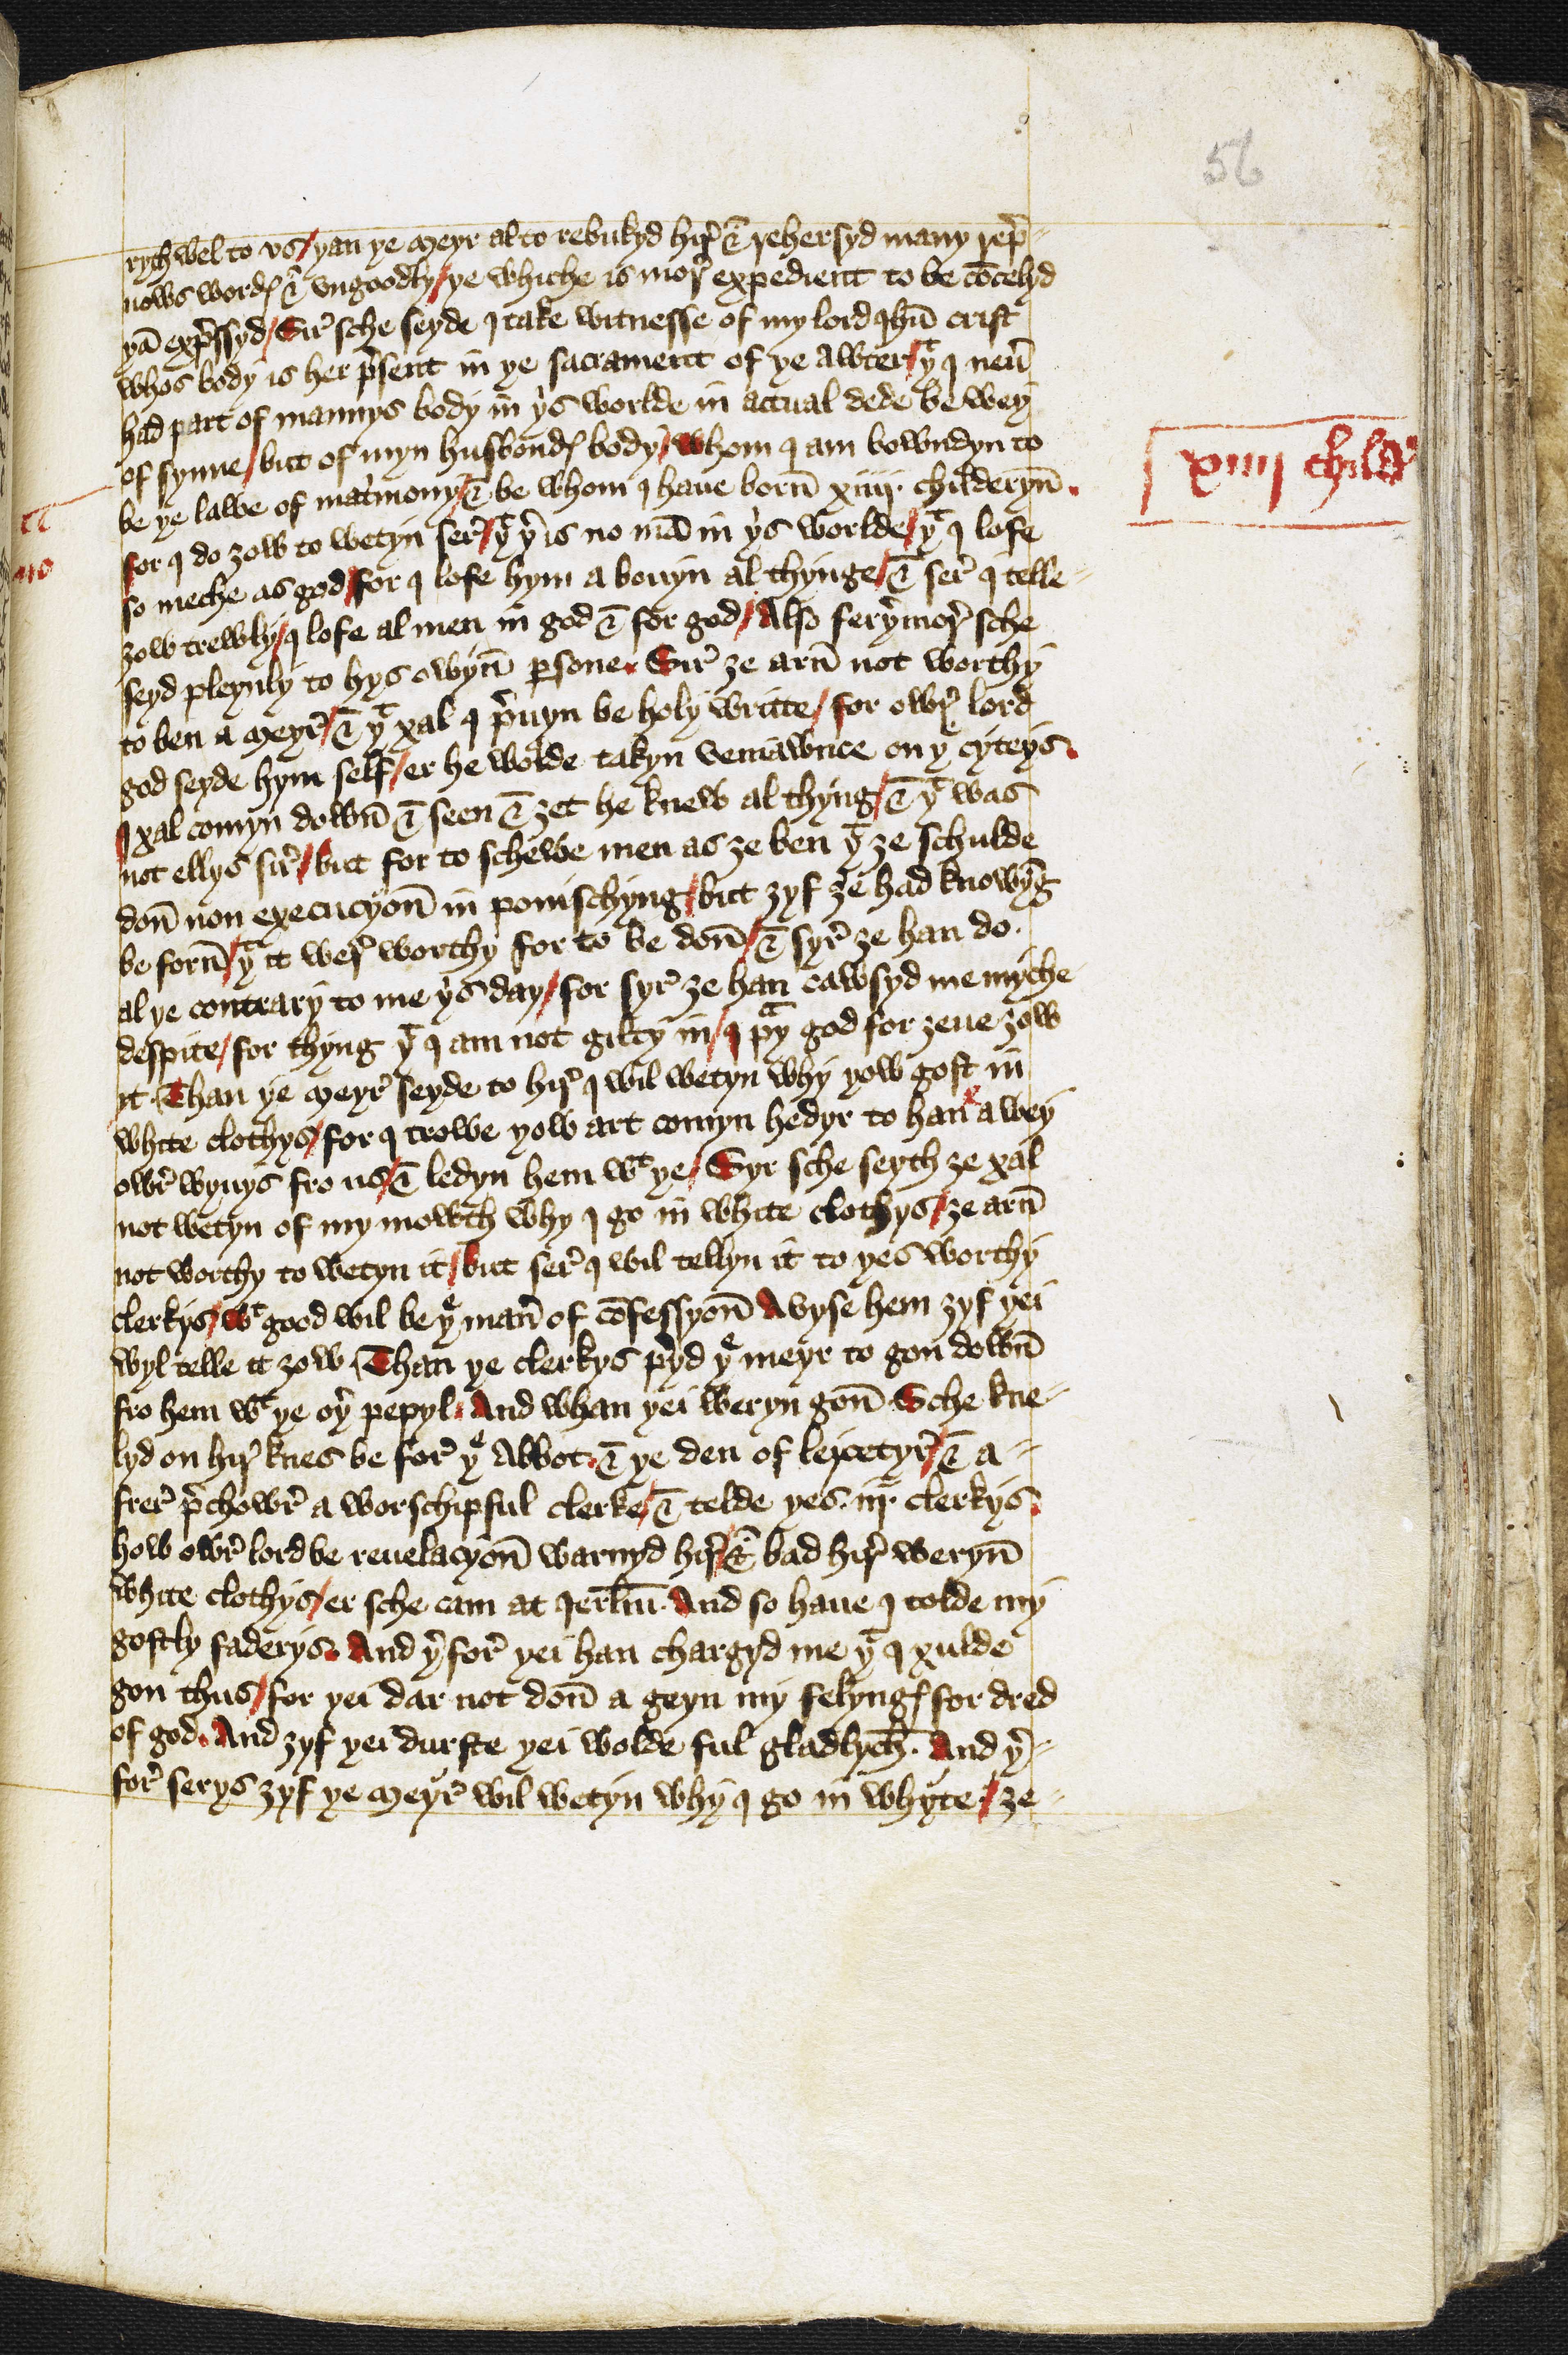 56
rygth wel to vs / yan ye Meyr al to rebukyd hir̉ & rehersyd many repr̉-
uows wordꝭ & vngoodly / ye whiche is mor̉ expedient to be cōcelyd
yā expr̉ssyd / Sir̉ sche seyde I take witnesse of my lord Ihū crist
whos body is her pr̉sent in ye sacrament of ye Awter / yᵗ I neuꝰ
had part of mannys body in yⁱs worlde in actual dede be wey
of synne / but of myn husbondꝭ body / whom I am bowndyn to
be ye lawe of matⁱmony / & be whom I haue born̄ xiiij. childeryn̄.
xiiij child̉
for I do ȝow to wetyn ser̉ / yᵗ yꝰ is no mā in yⁱs worlde / yᵗ I lofe
so meche as god / for I lofe hym a bouyn al thynge / & ser̉ I telle-
ȝow trewly / I lofe al men in god & for god / Also feryꝰmor̉ sche
seyd pleynly to hys owyn̄ ꝑsone. Sir̉ ȝe arn̄ not worthy
to ben a Meyr̉ / & yᵗ xal I pr̉uyn be holy writte / for owr̉ lord
god seyde hym self / er he wolde takyn veniawnce on yᵉ cyteys.
I xal comyn down̄ & seen & ȝet he knew al thyng / & yᵗ was
not ellys sir̉ / but for to schewe men as ȝe ben yᵗ ȝe schulde
don̄ non execucyon̄ in ponischyng / but ȝyf ȝe had knowȳg
be forn̄ / yᵗ it wer̉ worthy for to be don̄ / & syr̉ ȝe han do.
al ye contrary to me yⁱs day / for syr̉ ȝe han cawsyd me myche
despite / for thyng yᵗ I am not gilty in / I pᵃy god for ȝeue ȝow
it. Than ye Meyr̉ seyde to hir̉ I wil wetyn why yow gost in
white clothys / for I trowe yow art comyn hedyr to han a wey
owr̉ wyuys fro us / & ledyn hem wᵗ ye / Syr sche seyth ȝe xal
not wetyn of my mowth why I go in white clothys / ȝe arn̄
not worthy to wetyn it / but ser̉ I wil tellyn it to yes worthy
clerkys / wᵗ good wil be yᵉ man̉ of cōfessyon̄ Avyse hem ȝyf yei
wyl telle it ȝow. Than ye clerkys pr̉yd yᵉ meyr to gon down̄
fro hem wᵗ ye oyꝰ pepyl. And whan yei weryn gon̄ Sche kne-
lyd on hir̉ knes be for̉ yᵉ Abbot. & ye den of leycetyr̉ / & a-
frer̉ pr̉chowr̉ a worschipful clerke / & telde yes. iij. clerkys.
how owr̉ lord be reuelacyon̄ warnyd hir̉ / & bad hir̉ weryn̄
white clothys / er sche cam at Ierłm̄. And so haue I tolde my
gostly faderys. And yꝰfor̉ yei han chargyd me yᵗ I xulde
gon thus / for yei dar not don̄ a geyn my felyngꝭ for dred
of god. And ȝyf yei durste yei wolde ful gladlych̄. And yꝰ-
for̉ serys ȝyf ye Meyr̉ wil wetyn why I go in whyte. / ȝe-